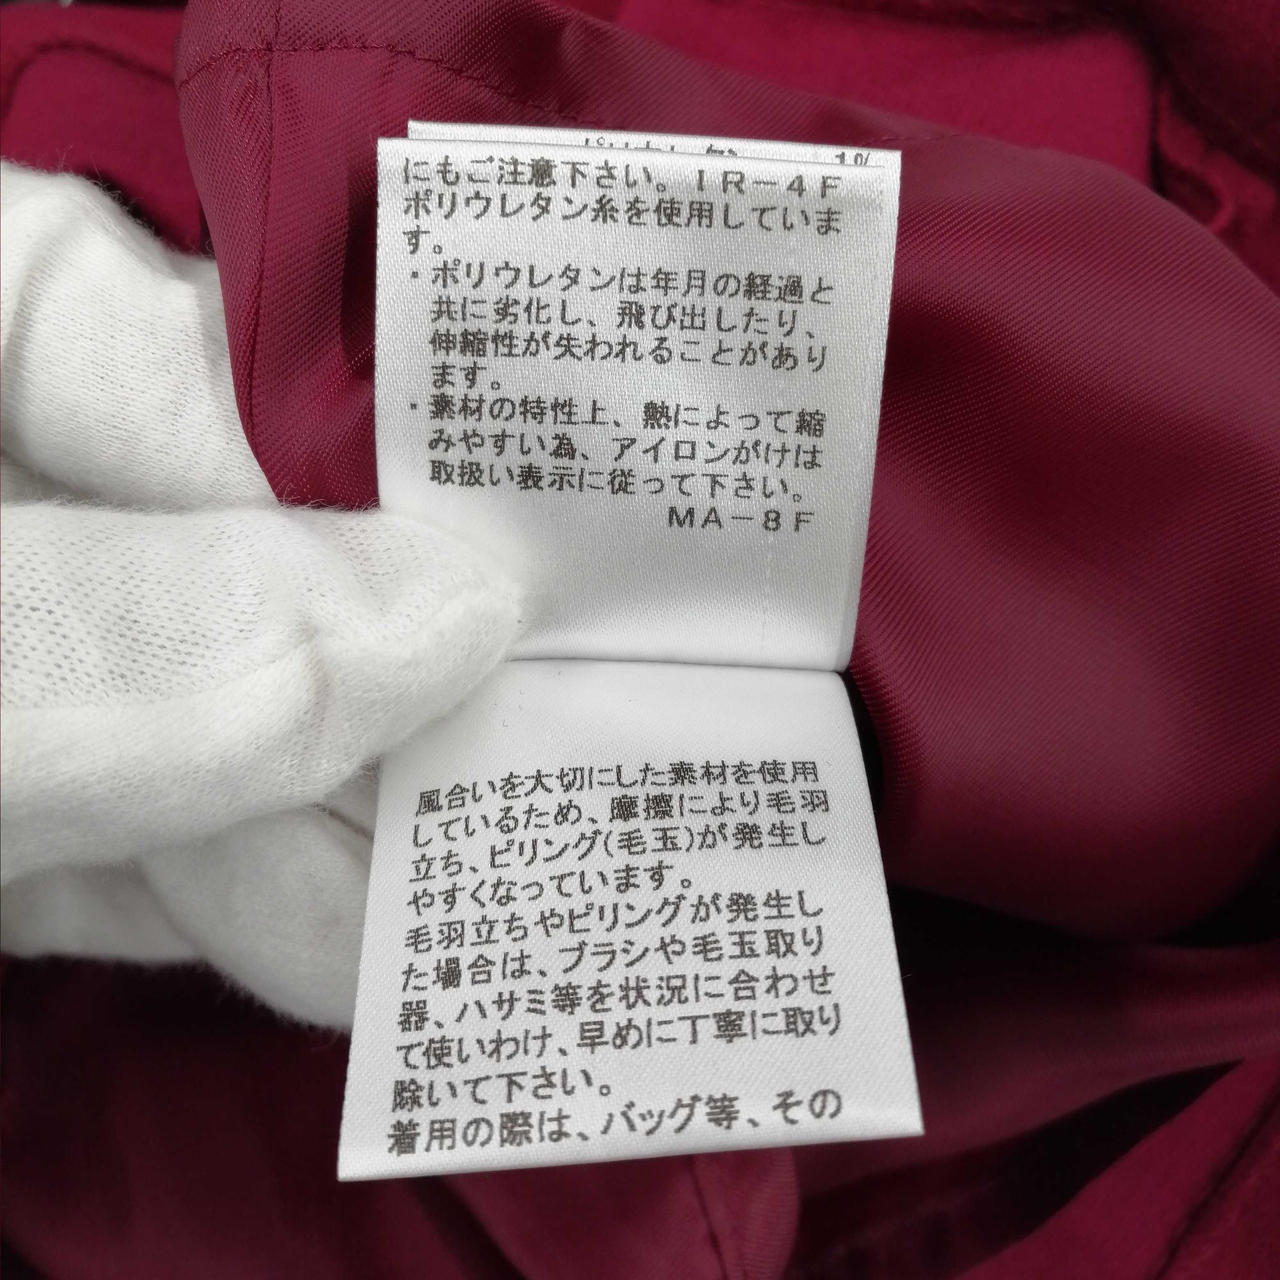 1%
にもご注意下さい。IR－4F
ポリウレタン糸を使用していま
す。
・ポリウレタンは年月の経過と
共に劣化し、飛び出したり、
伸縮性が失われることがあり
ます。
・素材の特性上、熱によって縮
みやすい為、アイロンがけは
取扱い表示に従って下さい。
MA－8F
風合いを大切にした素材を使用
しているため、摩擦により毛羽
立ち、ピリング(毛玉)が発生し
やすくなっています。
毛羽立ちやピリングが発生し
た場合は、ブラシや毛玉取り
器、ハサミ等を状況に合わせ
て使いわけ、早めに丁寧に取り
除いて下さい。
着用の際は、バッグ等、その